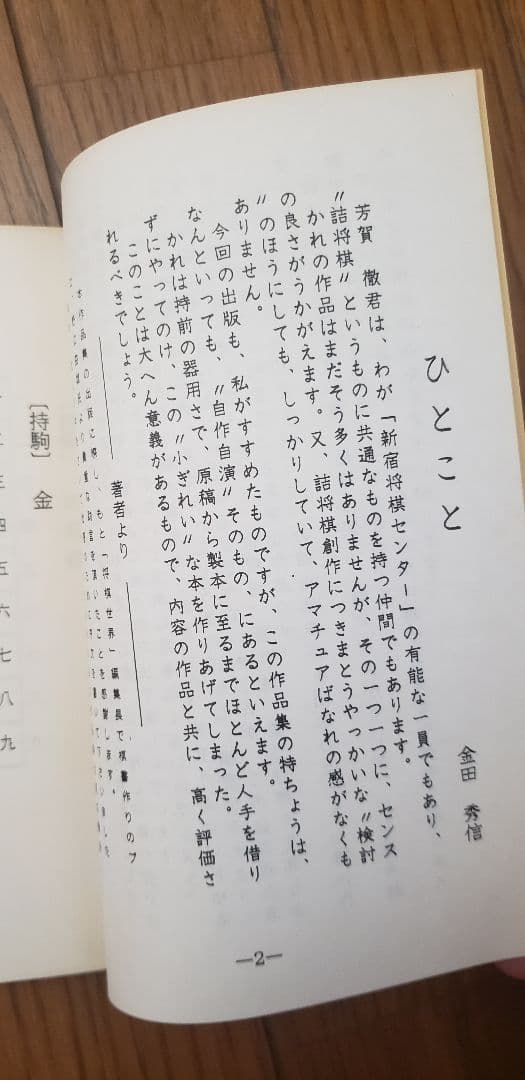 ひとこと
金田 秀信
芳賀 徹君は、わが「新宿将棋センター」の有能な一員でもあり、
〝詰将棋〟というものに共通なものを持つ仲間でもあります。
かれの作品はまだそう多くはありませんが、その一つ一つに、センス
の良さがうかがえます。又、詰将棋創作につきまとうやっかいな〝検討
〟のほうにしても、しっかりしていて、アマチュアばなれの感がなくも
ありません。
今回の出版も、私がすすめたものですが、この作品集の特ちょうは、
なんといっても、〝自作自演〟そのもの、にあるといえます。
かれは持前の器用さで、原稿から製本に至るまでほとんど人手を借り
ずにやってのけ、この〝小ぎれい〟な本を作りあげてしまった。
このことは大へん意義があるもので、内容の作品と共に、高く評価さ
れるべきでしょう。
著者より
本作品集の出版に際し、もと「将棋世界」編集長で棋書作りのプ
—2—
[持駒] 金
三 四 五 六 七 八 九